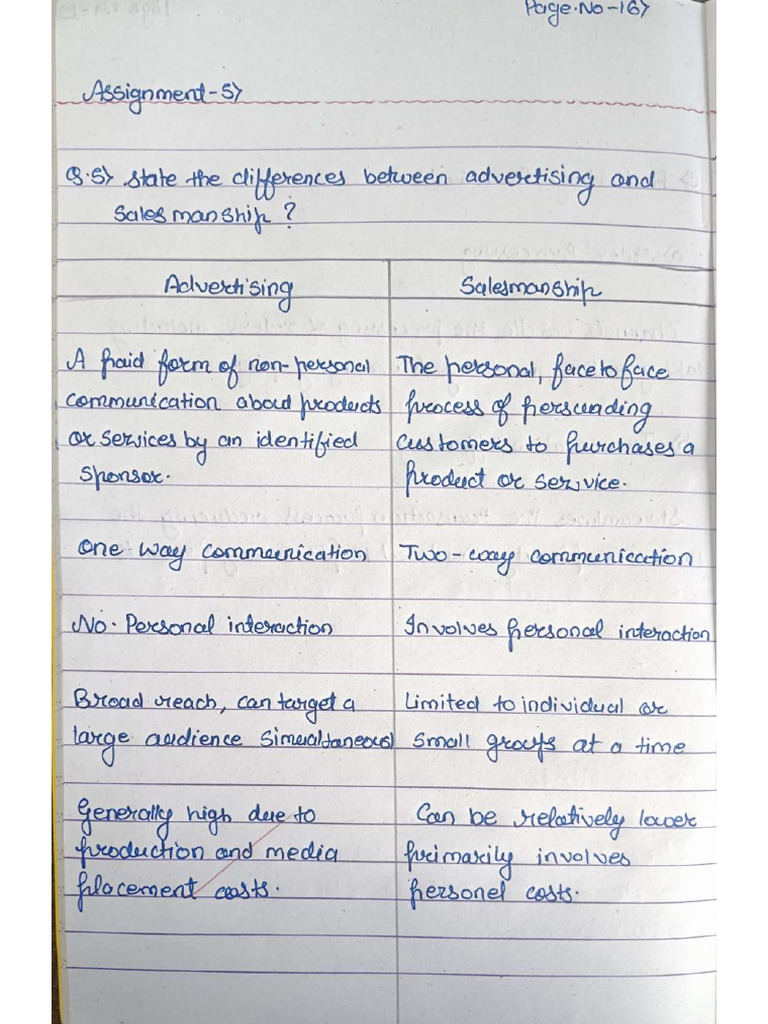 Page.No-16>
Assignment-5>
Q.5> State the differences between advertising and
salesmanship?
Advertising
Salesmanship
A paid form of non-personal
communication about products
or services by an identified
sponsor.
The personal, face to face
process of persuading
customers to purchases a
product or service.
One way communication
Two-way communication
No. Personal interaction
Involves personal interaction
Broad reach, can target a
large audience simultaneous)
Limited to individual or
small groups at a time
Generally high due to
production and media
placement costs.
Can be relatively lower
primarily involves
personel costs.